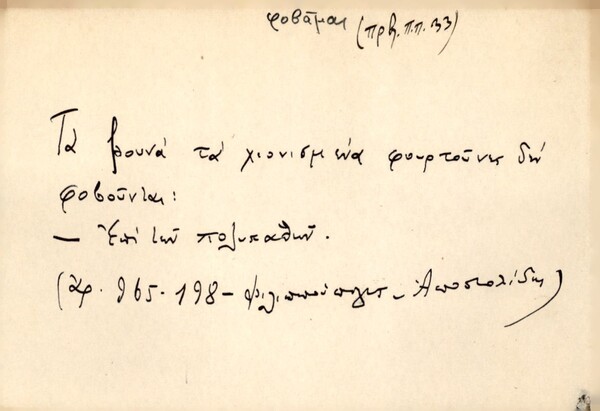 φοβᾶμαι (πρβ. π.π. 33)
Τὰ βουνὰ τὰ χιονισμένα φουρτοῦνες δὲν
φοβοῦνται:
— Ἐπὶ τῶν πολυπαθῶν.
(ἀρ. 965. 198 – Φιλιππούπολις – Ἀποστολίδης)